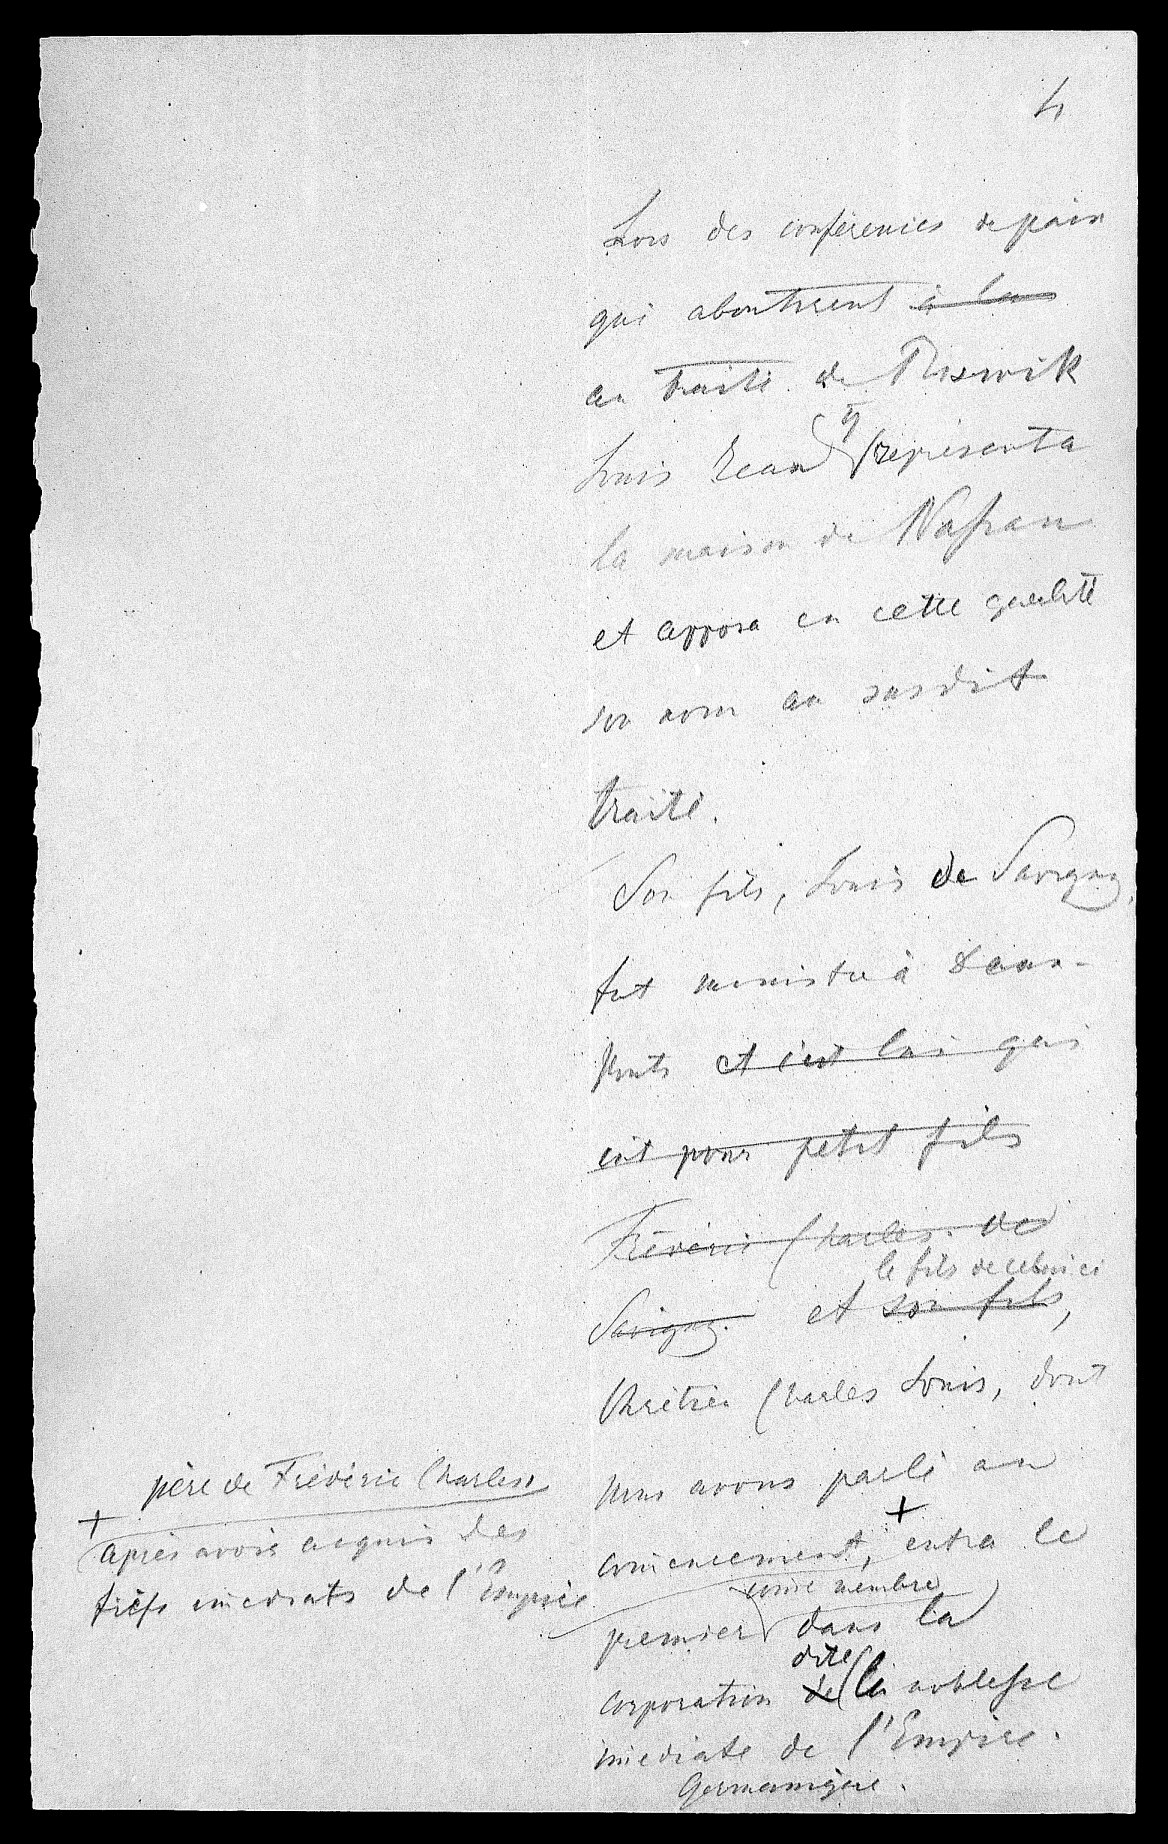 4
Lors des conférences de paix
qui aboutirent à la
au traité de Riswik
Louis Jean représenta
la maison de Naſsau
et apposa en cette qualité
son nom au susdit
traité.
Son fils, Louis de Savigny,
fut ministre à Deux-
Ponts et c'est lui qui
eut pour petit fils
Fréderic Charles de
le fils de celui ci
Savigny. et son fils,
Chrétien Charles Louis, dont
père de Fréderic Charles
nous avons parlé au
+
+
après avoir acquis des
comencement, entra le
fiefs imediats de l'Empire
come membre
premier dans la
dite
corporation de la nobleſse
imediate de l'Empire.
Germanique.